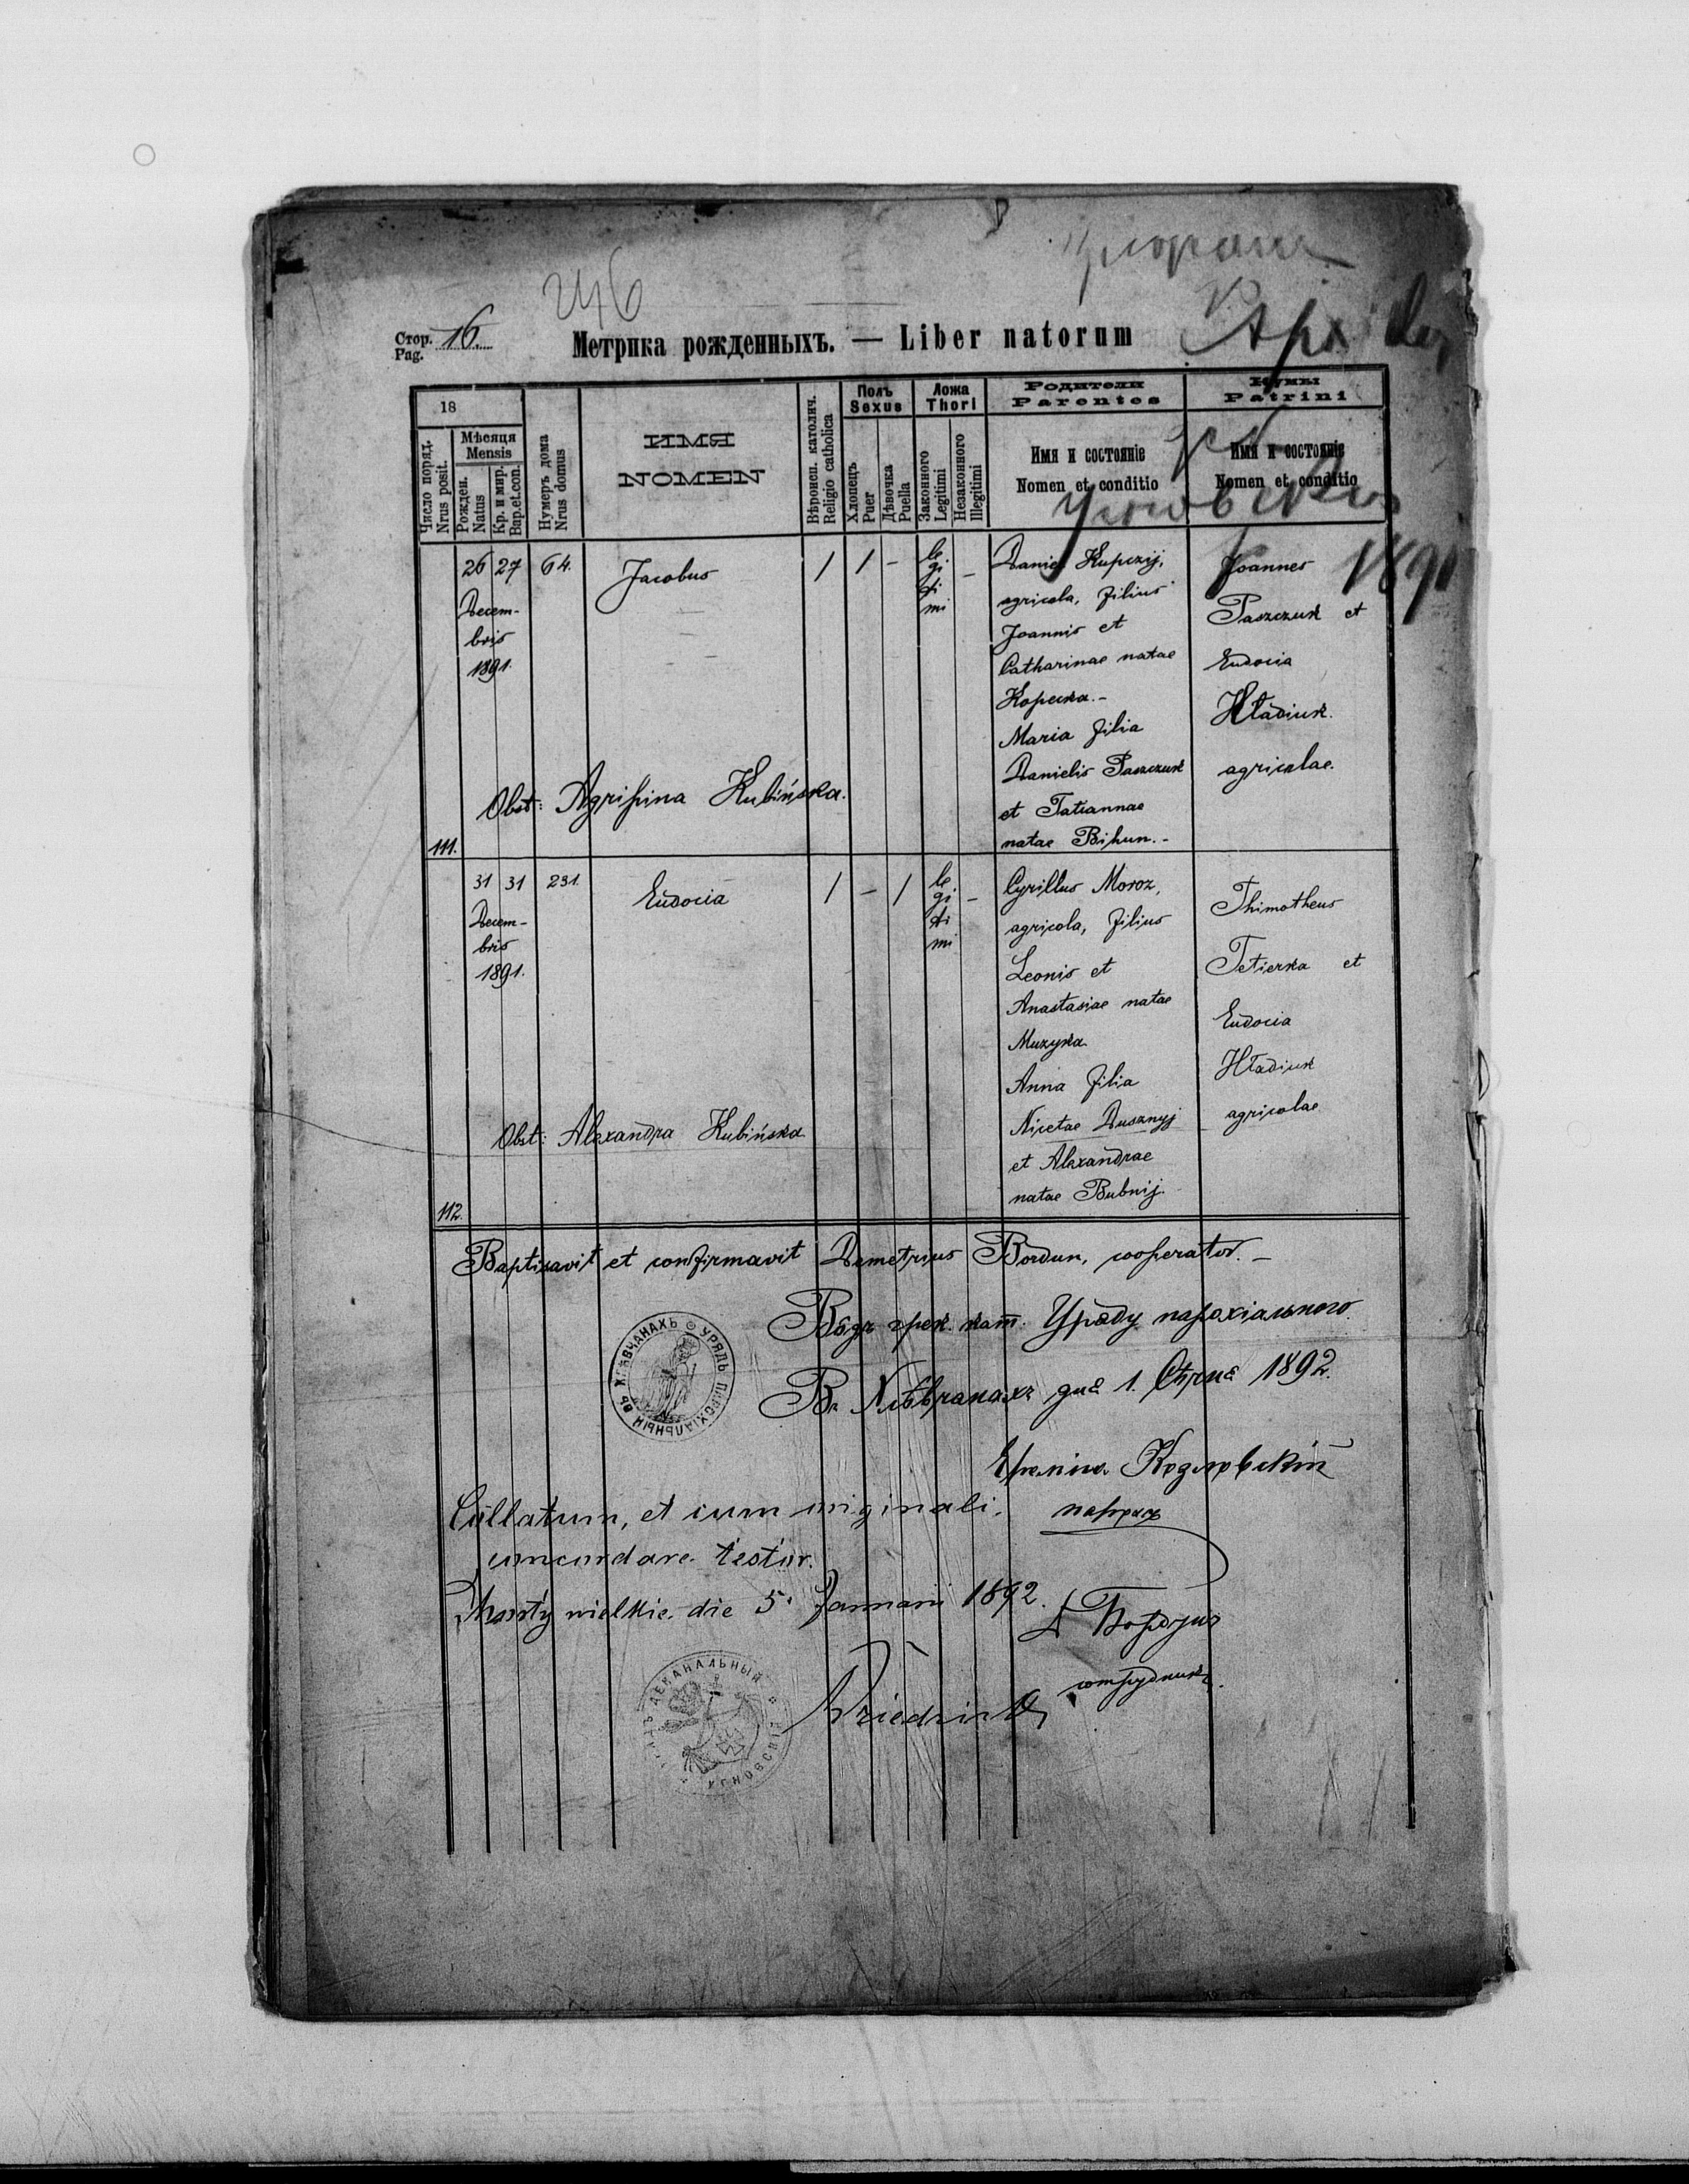 246
Стор. 16.
Pag.
Метрика рожденныхъ. — Liber natorum
18
Мѣсяця
Mensis
Число поряд.
Nrus posit.
Рожден.
Natus
Кр. и мир.
Bap.et.con.
Нумеръ дома
Nrus domus
ИМЯ
NOMEN
Вѣроисп. католич.
Religio catholica
Полъ
Sexus
Хлопецъ
Puer
Дѣвочка
Puella
Ложа
Thori
Законного
Legitimi
Незаконного
Illegitimi
Родители
Parentes
Имя и состоянiе
Nomen et conditio
Кумы
Patrini
Имя и состоянiе
Nomen et conditio
1891
111.
26 27 64.
Decem-
bris
1891.
Jacobus
/ / - le
gi
ti
mi
-
Daniel Kupczij,
agricola, filius
Joannis et
Catharinae natae
Kopecka.-
Maria filia
Danielis Paszczuk
et Tatiannae
natae Bihun.-
Joannes
Paszczuk et
Eudocia
Hładiuk.
agricolae.
Obst: Agripina Kubińska.
112.
31 31 231.
Decem-
bris
1891.
Eudocia
/ - / le
gi
ti
mi
-
Cyrillus Moroz,
agricola, filius
Leonis et
Anastasiae natae
Muzyka.
Anna filia
Nicetae Dusznyj
et Alexandrae
natae Bubnij.
Thimotheus
Tetierka et
Eudocia
Hładiuk
agricolae
Obst: Alexandra Kubińska
Baptisavit et confirmavit Demetrius Bordun, cooperator.-
Вôдъ грек. кат. Уряду парохiального.
Въ Хлѣвчанахъ дня 1. Сѣчня 1892.
УРЯДЪ ПАРОХIАЛЬНЫЙ ВЪ ХЛѢВЧАНАХЪ
Козловскiй
парохъ
Collatum, et cum originali,
concordare testor.
Mosty wielkie. die 5. Januarii 1892.
Д Бордунъ
сотрудникъ.
ДЕКАНАЛЬНЫЙ